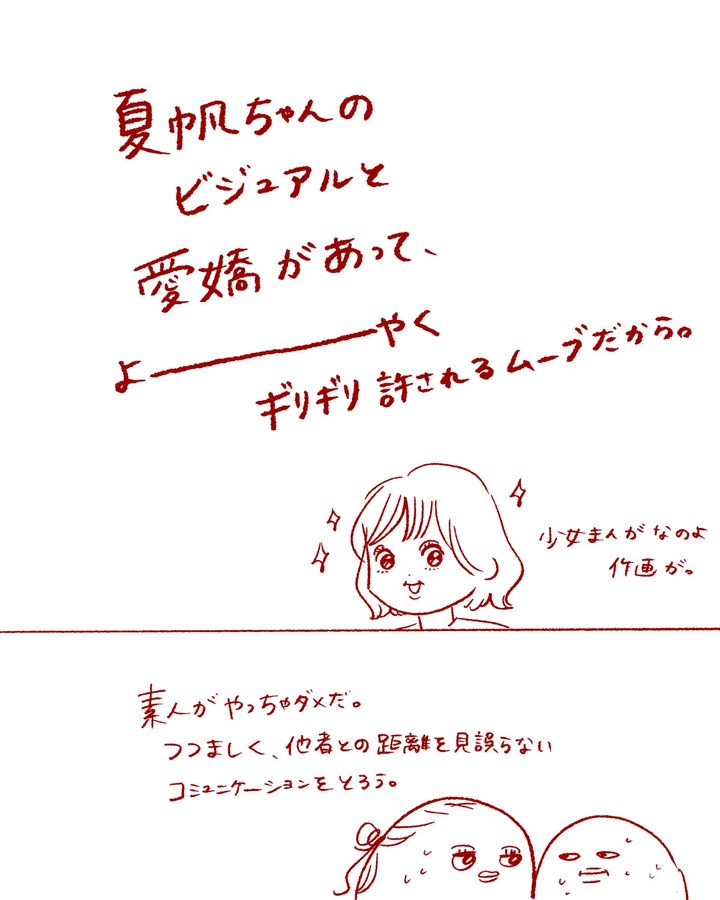 夏帆ちゃんの
ビジュアルと
愛嬌があって、
よーーーやく
ギリギリ許されるムーブだから。
少女まんがなのよ
作画が。
素人がやっちゃダメだ。
つつましく、他者との距離を見誤らない
コミュニケーションをとろう。